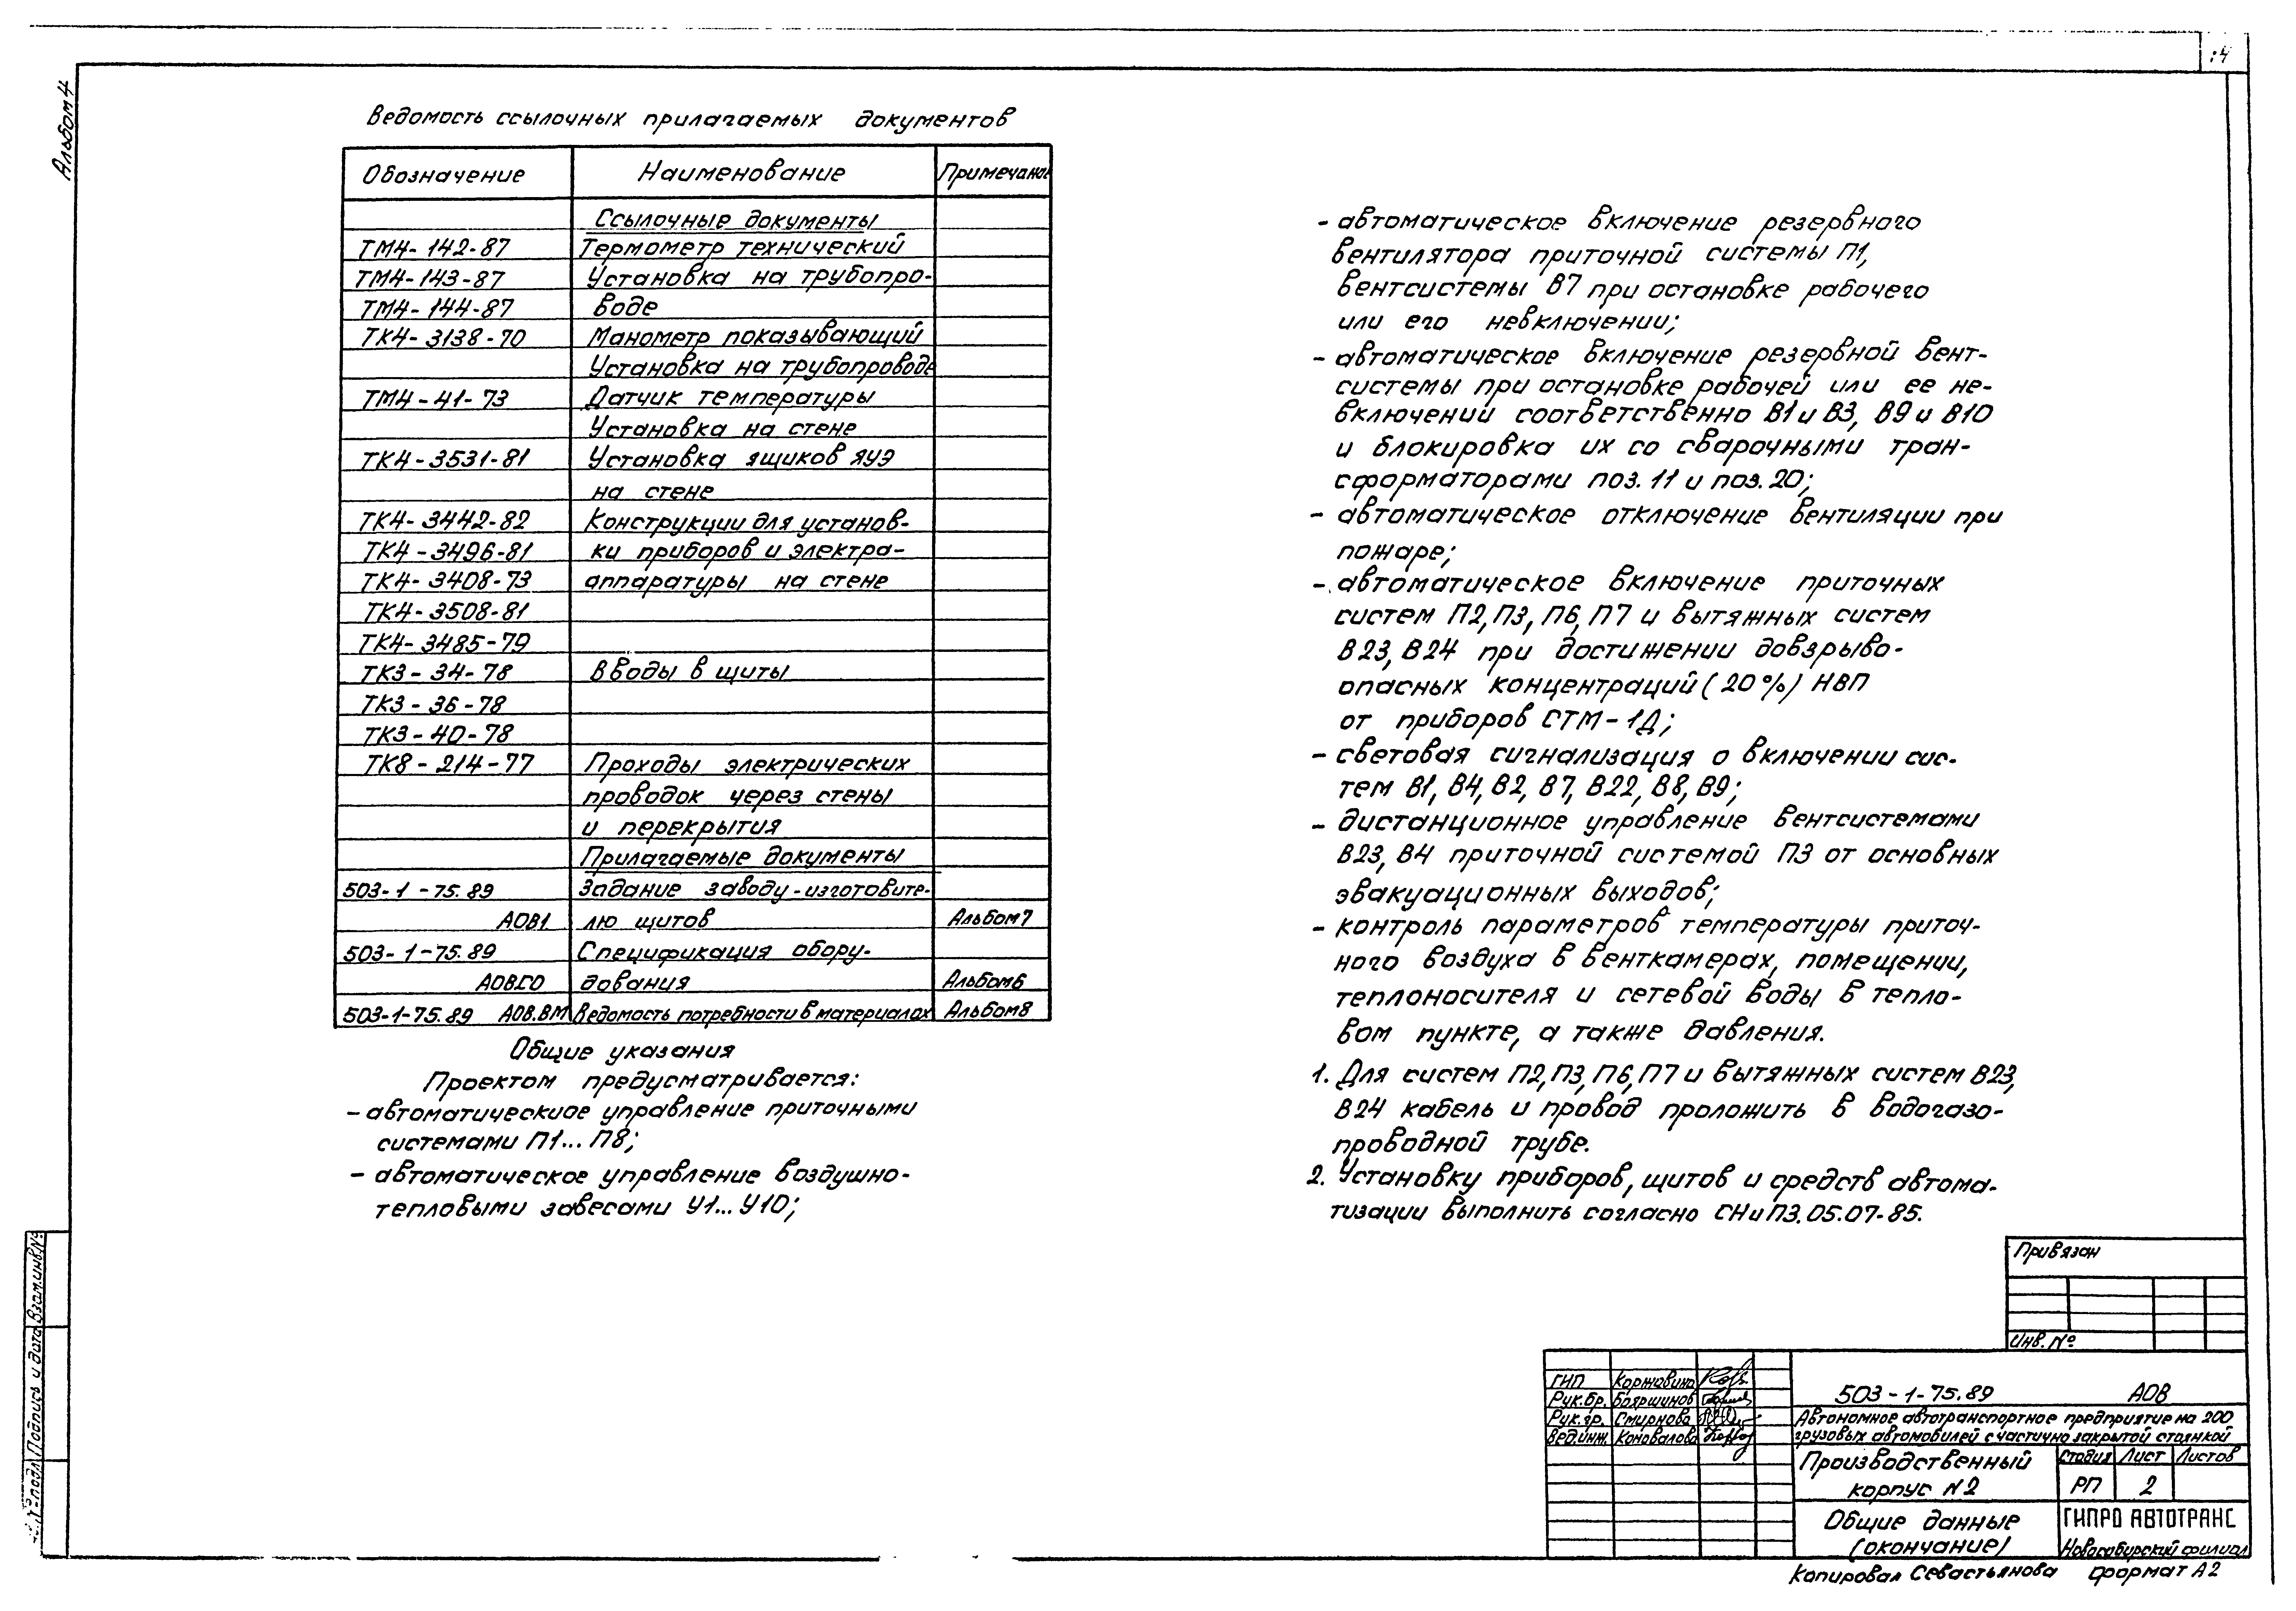 :4
Альбом 4
Ведомость ссылочных прилагаемых документов
Обозначение Наименование Примечание
Ссылочные документы
ТМ4-142-87 Термометр технический
ТМ4-143-87 Установка на трубопро-
ТМ4-144-87 воде
ТК4-3138-70 Манометр показывающий
Установка на трубопроводе
ТМ4-41-73 Датчик температуры
Установка на стене
ТК4-3531-81 Установка ящиков ЯУЭ
на стене
ТК4-3442-82 Конструкции для установ-
ТК4-3496-81 ки приборов и электра-
ТК4-3408-73 аппаратуры на стене
ТК4-3508-81
ТК4-3485-79
ТК3-34-78 Вводы в щиты
ТК3-36-78
ТК3-40-78
ТК8-214-77 Проходы электрических
проводок через стены
и перекрытия
Прилагаемые документы
503-1-75.89 Задание заводу-изготовите-
АОВ1 лю щитов Альбом 7
503-1-75.89 Спецификация обору-
АОВ.СО дования Альбом 6
503-1-75.89 АОВ.ВМ Ведомость потребности в материалах Альбом 8
Общие указания
Проектом предусматривается:
- автоматическиое управление приточными
системами П1... П8;
- автоматическое управление воздушно-
тепловыми завесами У1... У10;
- автоматическое включение резервного
вентилятора приточной системы П1,
вентсистемы В7 при остановке рабочего
или его невключении;
- автоматическое включение резервной вент-
системы при остановке рабочей или ее не-
включений соответственно В1 и В3, В9 и В10
и блокировка их со сварочными тран-
сформаторами поз. 11 и поз. 20;
- автоматическое отключение вентиляции при
пожаре;
- автоматическое включение приточных
систем П2, П3, П6, П7 и вытяжных систем
В23, В24 при достижении довзрыво-
опасных концентраций (20%) НВП
от приборов СТМ-1Д;
- световая сигнализация о включении сис-
тем В1, В4, В2, В7, В22, В8, В9;
- дистанционное управление вентсистемами
В23, В4 приточной системой П3 от основных
эвакуационных выходов;
- контроль параметров температуры приточ-
ного воздуха в венткамерах, помещении,
теплоносителя и сетевой воды в тепло-
вом пункте, а также давления.
1. Для систем П2, П3, П6, П7 и вытяжных систем В23,
В24 кабель и провод проложить в водогазо-
проводной трубе.
2. Установку приборов, щитов и средств автома-
тизации выполнить согласно СНиП3.05.07-85.
Привязан
Инв. №
ГИП Коржавина
Рук.бр. Бояршинов
Рук.гр. Смирнова
Вед.инж. Коновалова
503-1-75.89 АОВ
Автономное автотранспортное предприятие на 200
грузовых автомобилей с частично закрытой стоянкой
Производственный
корпус N2
Стадия Лист Листов
РП 2
Общие данные
(окончание)
ГИПРОАВТОТРАНС
Новосибирский филиал
Копировал Севастьянова Формат А2
Взам.инв.№
Подпись и дата
№ подл